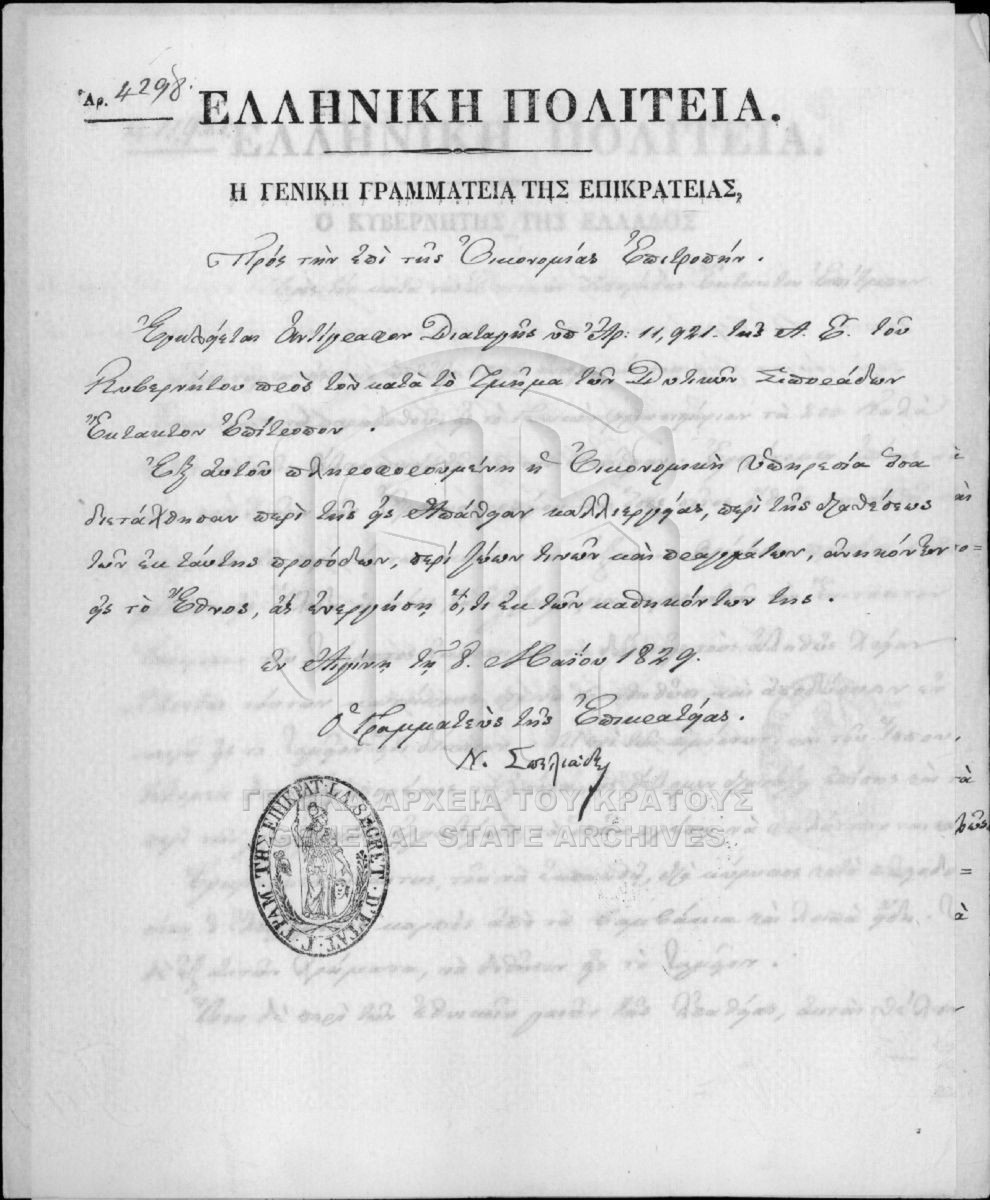 Ἀρ. 4298.
ΕΛΛΗΝΙΚΗ ΠΟΛΙΤΕΙΑ.
Η ΓΕΝΙΚΗ ΓΡΑΜΜΑΤΕΙΑ ΤΗΣ ΕΠΙΚΡΑΤΕΙΑΣ,
Πρὸς τὴν ἐπὶ τῆς Οἰκονομίας Ἐπιτροπήν.
Ἐγκλείεται Ἀντίγραφον Διαταγῆς ὑπ' Ἀρ: 11,921. τῆς Α. Ε. τοῦ
Κυβερνήτου πρὸς τὸν κατὰ τὸ Τμῆμα τῶν Δυτικῶν Σποράδων
Ἔκτακτον Ἐπίτροπον.
Ἐξ αὐτοῦ πληροφορουμένη ἡ Οἰκονομικὴ Ὑπηρεσία ὅσα
διετάχθησαν περὶ τῆς εἰς Ἀπάθειαν καλλιεργείας, περὶ τῆς διαθέσεως
τῶν ἐκ ταύτης προσόδων, περὶ ζώων τινῶν καὶ πραγμάτων, ἀνηκόντων
εἰς τὸ Ἔθνος, ἂς ἐνεργήσῃ ὅ,τι ἐκ τῶν καθηκόντων της.
ἐν Αἰγίνῃ τῇ 8. Μαΐου 1829.
Ὁ Γραμματεὺς τῆς Ἐπικρατείας.
Ν. Σπηλιάδης
Γ. ΓΡΑΜ. ΤΗΣ ΕΠΙΚΡΑΤ. LA SECRET. D'ETAT.
ΓΕΝΙΚΑ ΑΡΧΕΙΑ ΤΟΥ ΚΡΑΤΟΥΣ
GENERAL STATE ARCHIVES